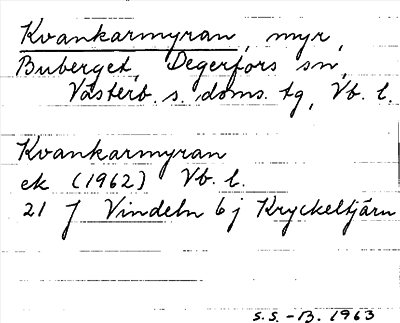 Kvankarmyran, myr,
Buberget, Degerfors sn,
Västerb. s. doms. tg, Vb. l.
Kvankarmyran
ek (1962) Vb. l.
21 J Vindeln 6 j Kryckeltjärn
S.S. - B. 1963